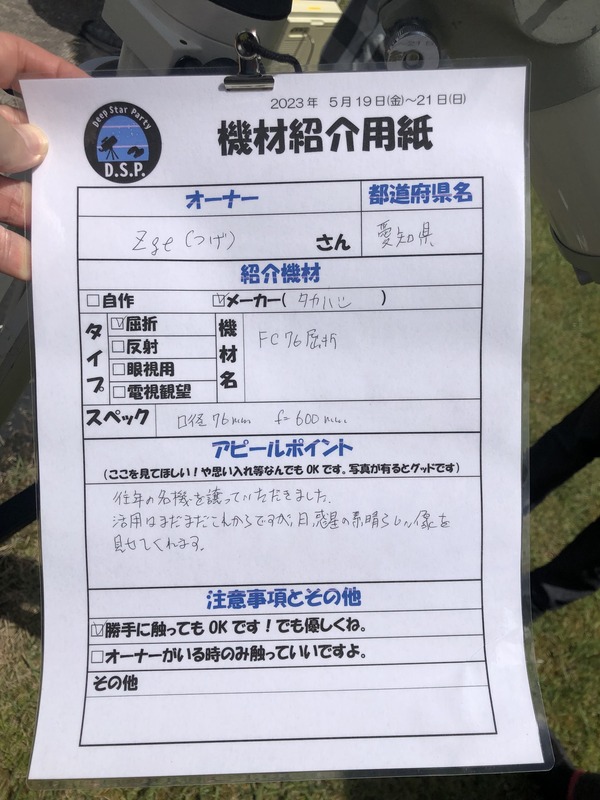 2023年 5月19日(金)～21日(日)
Deep Star Party
D.S.P.
機材紹介用紙
オーナー 都道府県名
Zge (つげ) さん 愛知県
紹介機材
□自作 ☑メーカー( タカハシ )
タイプ
☑屈折
□反射
□眼視用
□電視観望
機材名
FC76屈折
スペック 口径76mm f=600mm
アピールポイント
(ここを見てほしい!や思い入れ等なんでもOKです。写真が有るとグッドです)
往年の名機を譲っていただきました。
活用はまだまだこれからですが、月、惑星の素晴らしい像を
見せてくれます。
注意事項とその他
☑勝手に触ってもOKです!でも優しくね。
□オーナーがいる時のみ触っていいですよ。
その他